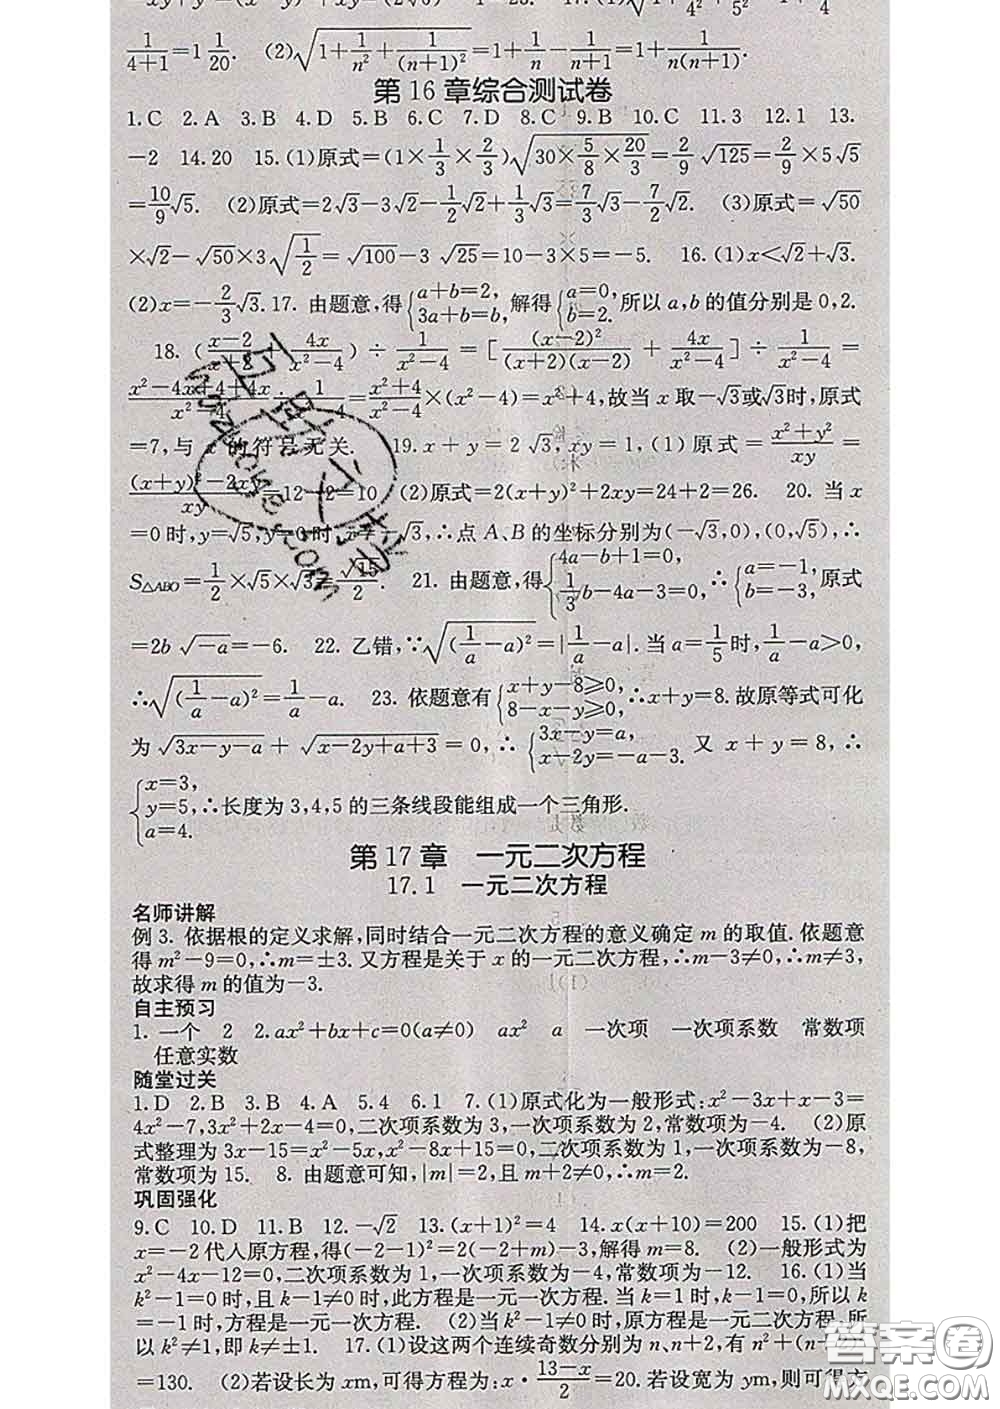 1/(4+1)=1 1/20. (2)√(1+1/n²+1/(n+1)²)=1+1/n-1/(n+1)=1+1/n(n+1).
第16章综合测试卷
1.C 2.A 3.B 4.D 5.B 6.C 7.D 8.C 9.B 10.C 11.3 12.1 13.
-2 14.20 15.(1)原式=(1×1/3×2/3)√(30×5/8×20/3)=2/9√125=2/9×5√5
=10/9√5. (2)原式=2√3-3√2-1/2√2+1/3√3=7/3√3-7/2√2. (3)原式=√50
×√2-√50×3√(1/2)=√100-3√25=10-3×5=-5. 16.(1)x<√2+√3.
(2)x=-2/3√3.17. 由题意,得{a+b=2, 3a+b=b, 解得{a=0, b=2. 所以a,b的值分别是0,2.
18.(x-2/x+2+4x/x²-4)÷1/x²-4=[(x-2)²/(x+2)(x-2)+4x/x²-4]÷1/x²-4=
x²-4x+4+4x/x²-4÷1/x²-4=x²+4/x²-4×(x²-4)=x²+4,故当x取-√3或√3时,原式
=7,与x的符号无关. 19.x+y=2√3,xy=1,(1)原式=x²+y²/xy=
(x+y)²-2xy/xy=12-2=10 (2)原式=2(x+y)²+2xy=24+2=26. 20.当x
=0时,y=√5,y=0时,x=-√3,∴点A、B的坐标分别为(-√3,0),(0,√5),∴
S△ABO=1/2×√5×√3=√15/2. 21.由题意,得{4a-b+1=0, 1/3b-4a-3=0, ∴{a=-1, b=-3, 原式
=2b√-a=-6. 22.乙错,∵√(1/a-a)²=|1/a-a|.当a=1/5时,1/a-a>0,
∴√(1/a-a)²=1/a-a. 23.依题意有{x+y-8≥0, 8-x-y≥0, ∴x+y=8.故原等式可化
为√3x-y-a+√x-2y+a+3=0,∴{3x-y=a, x-2y=-a-3. 又x+y=8,∴
{x=3, y=5, a=4. ∴长度为3,4,5的三条线段能组成一个三角形.
第17章 一元二次方程
17.1 一元二次方程
名师讲解
例3.依据根的定义求解,同时结合一元二次方程的意义确定m的取值.依题意
得m²-9=0,∴m=±3.又方程是关于x的一元二次方程,∴m-3≠0,∴m≠3,
故求得m的值为-3.
自主预习
1.一个 2 2.ax²+bx+c=0(a≠0) ax² a 一次项 一次项系数 常数项
任意实数
随堂过关
1.D 2.B 3.B 4.A 5.4 6.1 7.(1)原式化为一般形式:x²-3x+x-3=
4x²-7,3x²+2x-4=0,二次项系数为3,一次项系数为2,常数项为-4. (2)原
式整理为3x-15=x²-5x,x²-8x+15=0,二次项系数为1,一次项系数为-8,
常数项为15. 8.由题意可知,|m|=2,且m+2≠0,∴m=2.
巩固强化
9.C 10.D 11.B 12.-√2 13.(x+1)²=4 14.x(x+10)=200 15.(1)把
x=-2代人原方程,得(-2-1)²=2(-2+m)-3,解得m=8. (2)一般形式为
x²-4x-12=0,二次项系数为1,一次项系数为-4,常数项为-12. 16.(1)当
k²-1=0时,且k-1≠0时,此方程是一元一次方程.当k=1时,k-1=0,所以k=-1
时,方程是一元一次方程. (2)当k²-1≠0时,原方程是一元二次方程.所
以k²≠1,即k≠±1. 17.(1)设这两个连续奇数分别为n、n+2,有n²+(n+2)²
=130. (2)若设长为xm,可得方程为:x·13-x/2=20.若设宽为ym,则可得方
答案圈
MXQE.COM